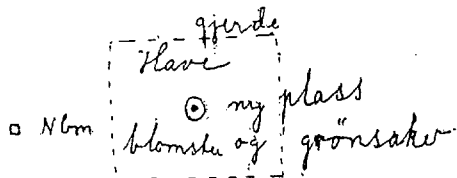 gjerde
Have
ny plass
▫ Nbm
blomster og grönsaker